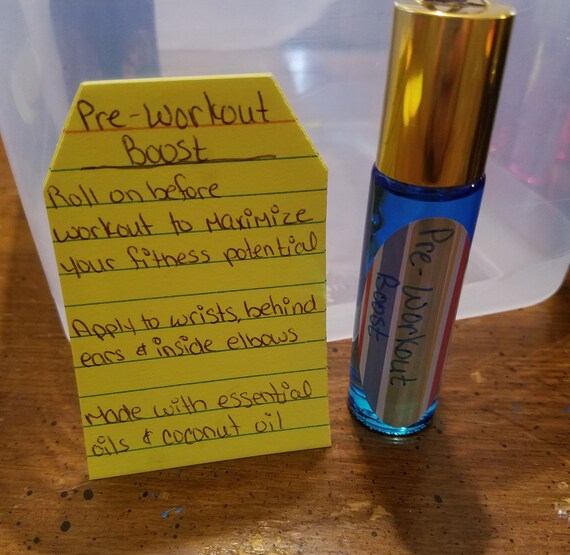 Pre-Workout
Boost
Roll on before
workout to Maximize
your fitness potential
Apply to wrists, behind
ears & inside elbows
Made with essential
oils & coconut oil
Pre-Workout
Boost